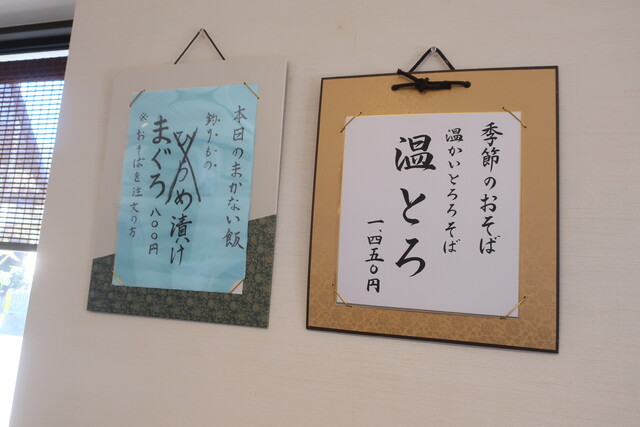 本日のまかない飯
め漬け
まぐろ 八〇〇円
※おそばを注文の方
季節のおそば
温かいとろろそば
温とろ
一、四五〇円